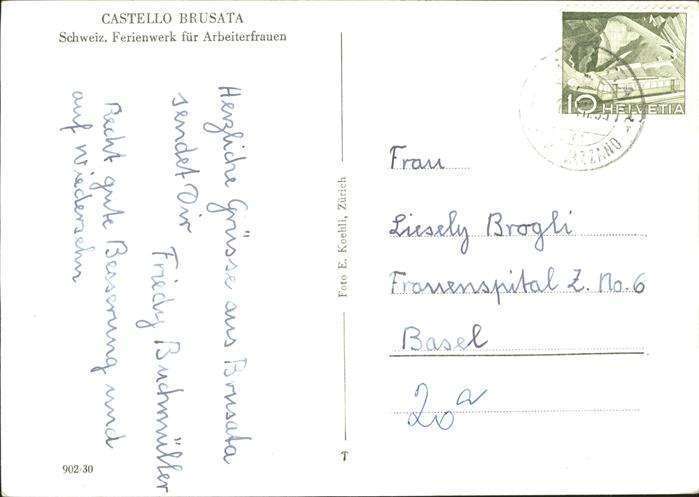 CASTELLO BRUSATA
Schweiz. Ferienwerk für Arbeiterfrauen
Herzliche Grüsse aus Brusata
sendet Dir
Friedy Buchmüller
Recht gute Besserung und
auf wiedersehn
902-30
Foto E. Koehli, Zürich
T
10 HELVETIA
Frau
Liesely Brogli
Frauenspital Z. No. 6
Basel
20a